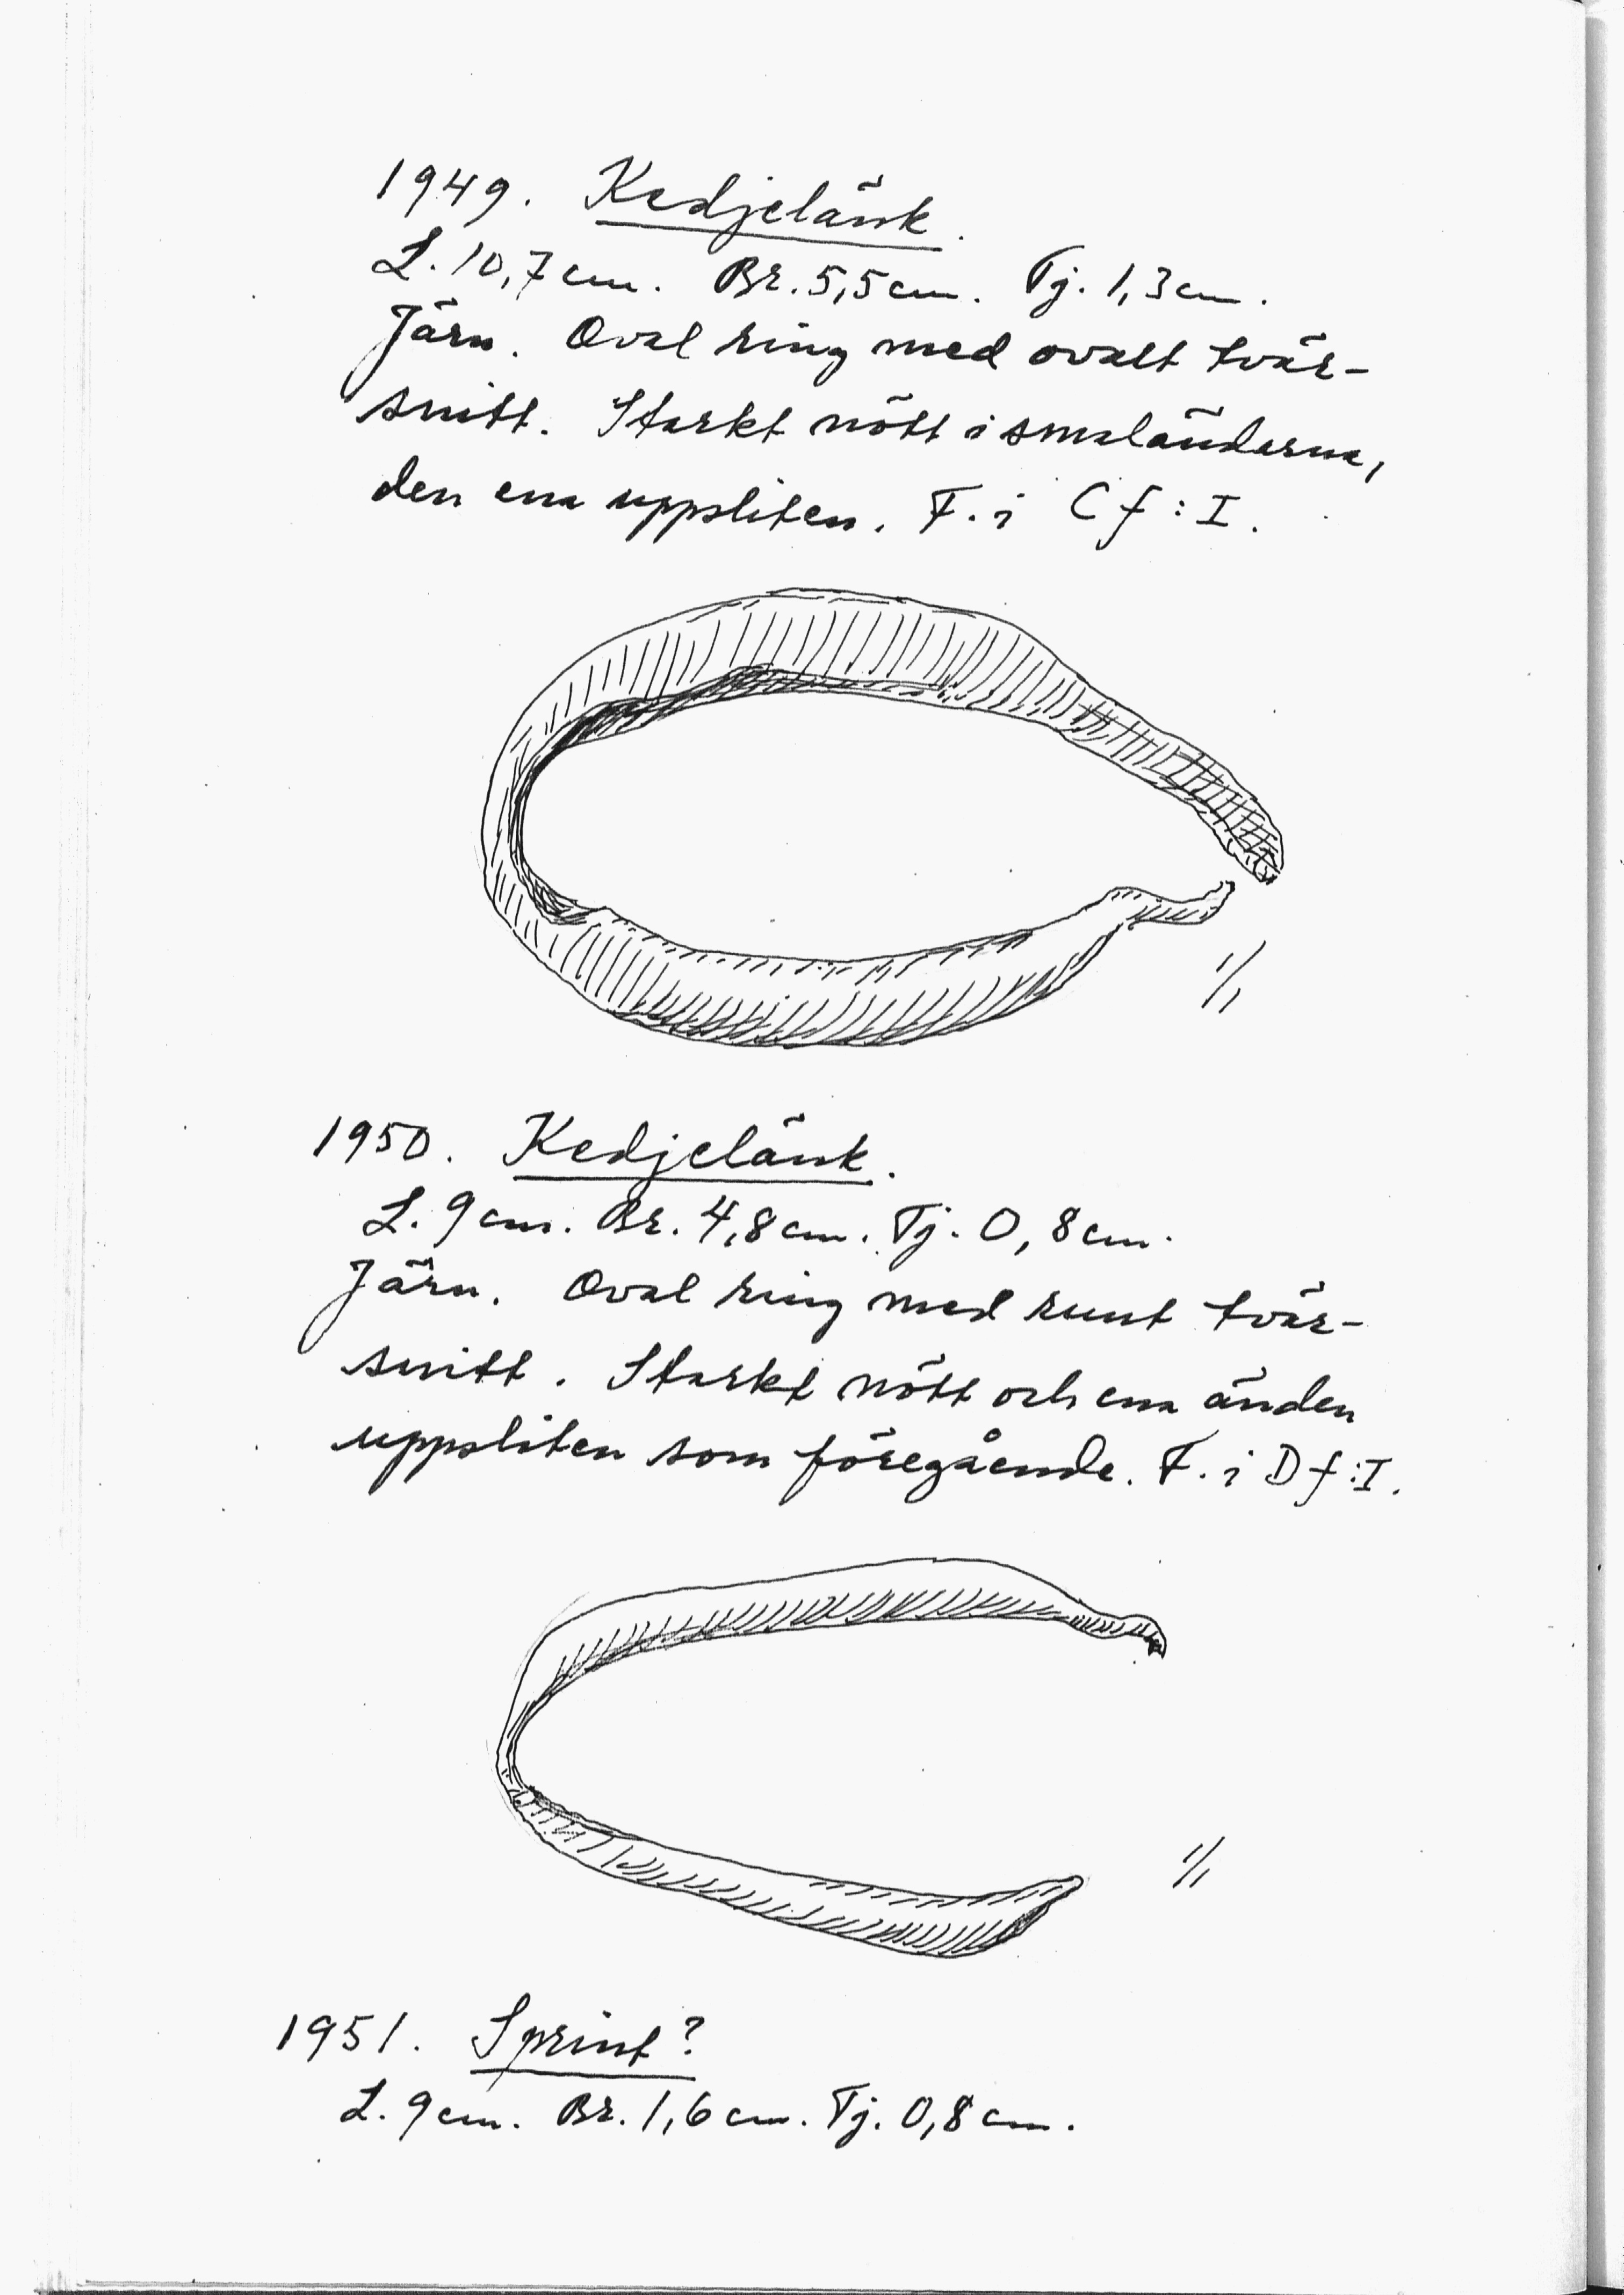 1949. Kedjelänk.
L. 10,7 cm. Br. 5,5 cm. Tj. 1,3 cm.
Järn. Oval ring med ovalt tvär-
snitt. Starkt nött i smaländarna,
den ena uppsliten. F. i Cf:I.
1/1
1950. Kedjelänk.
L. 9 cm. Br. 4,8 cm. Tj. 0,8 cm.
Järn. Oval ring med runt tvär-
snitt. Starkt nött och ena änden
uppsliten som föregående. F. i Df:I.
1/1
1951. Sprint?
L. 9 cm. Br. 1,6 cm. Tj. 0,8 cm.